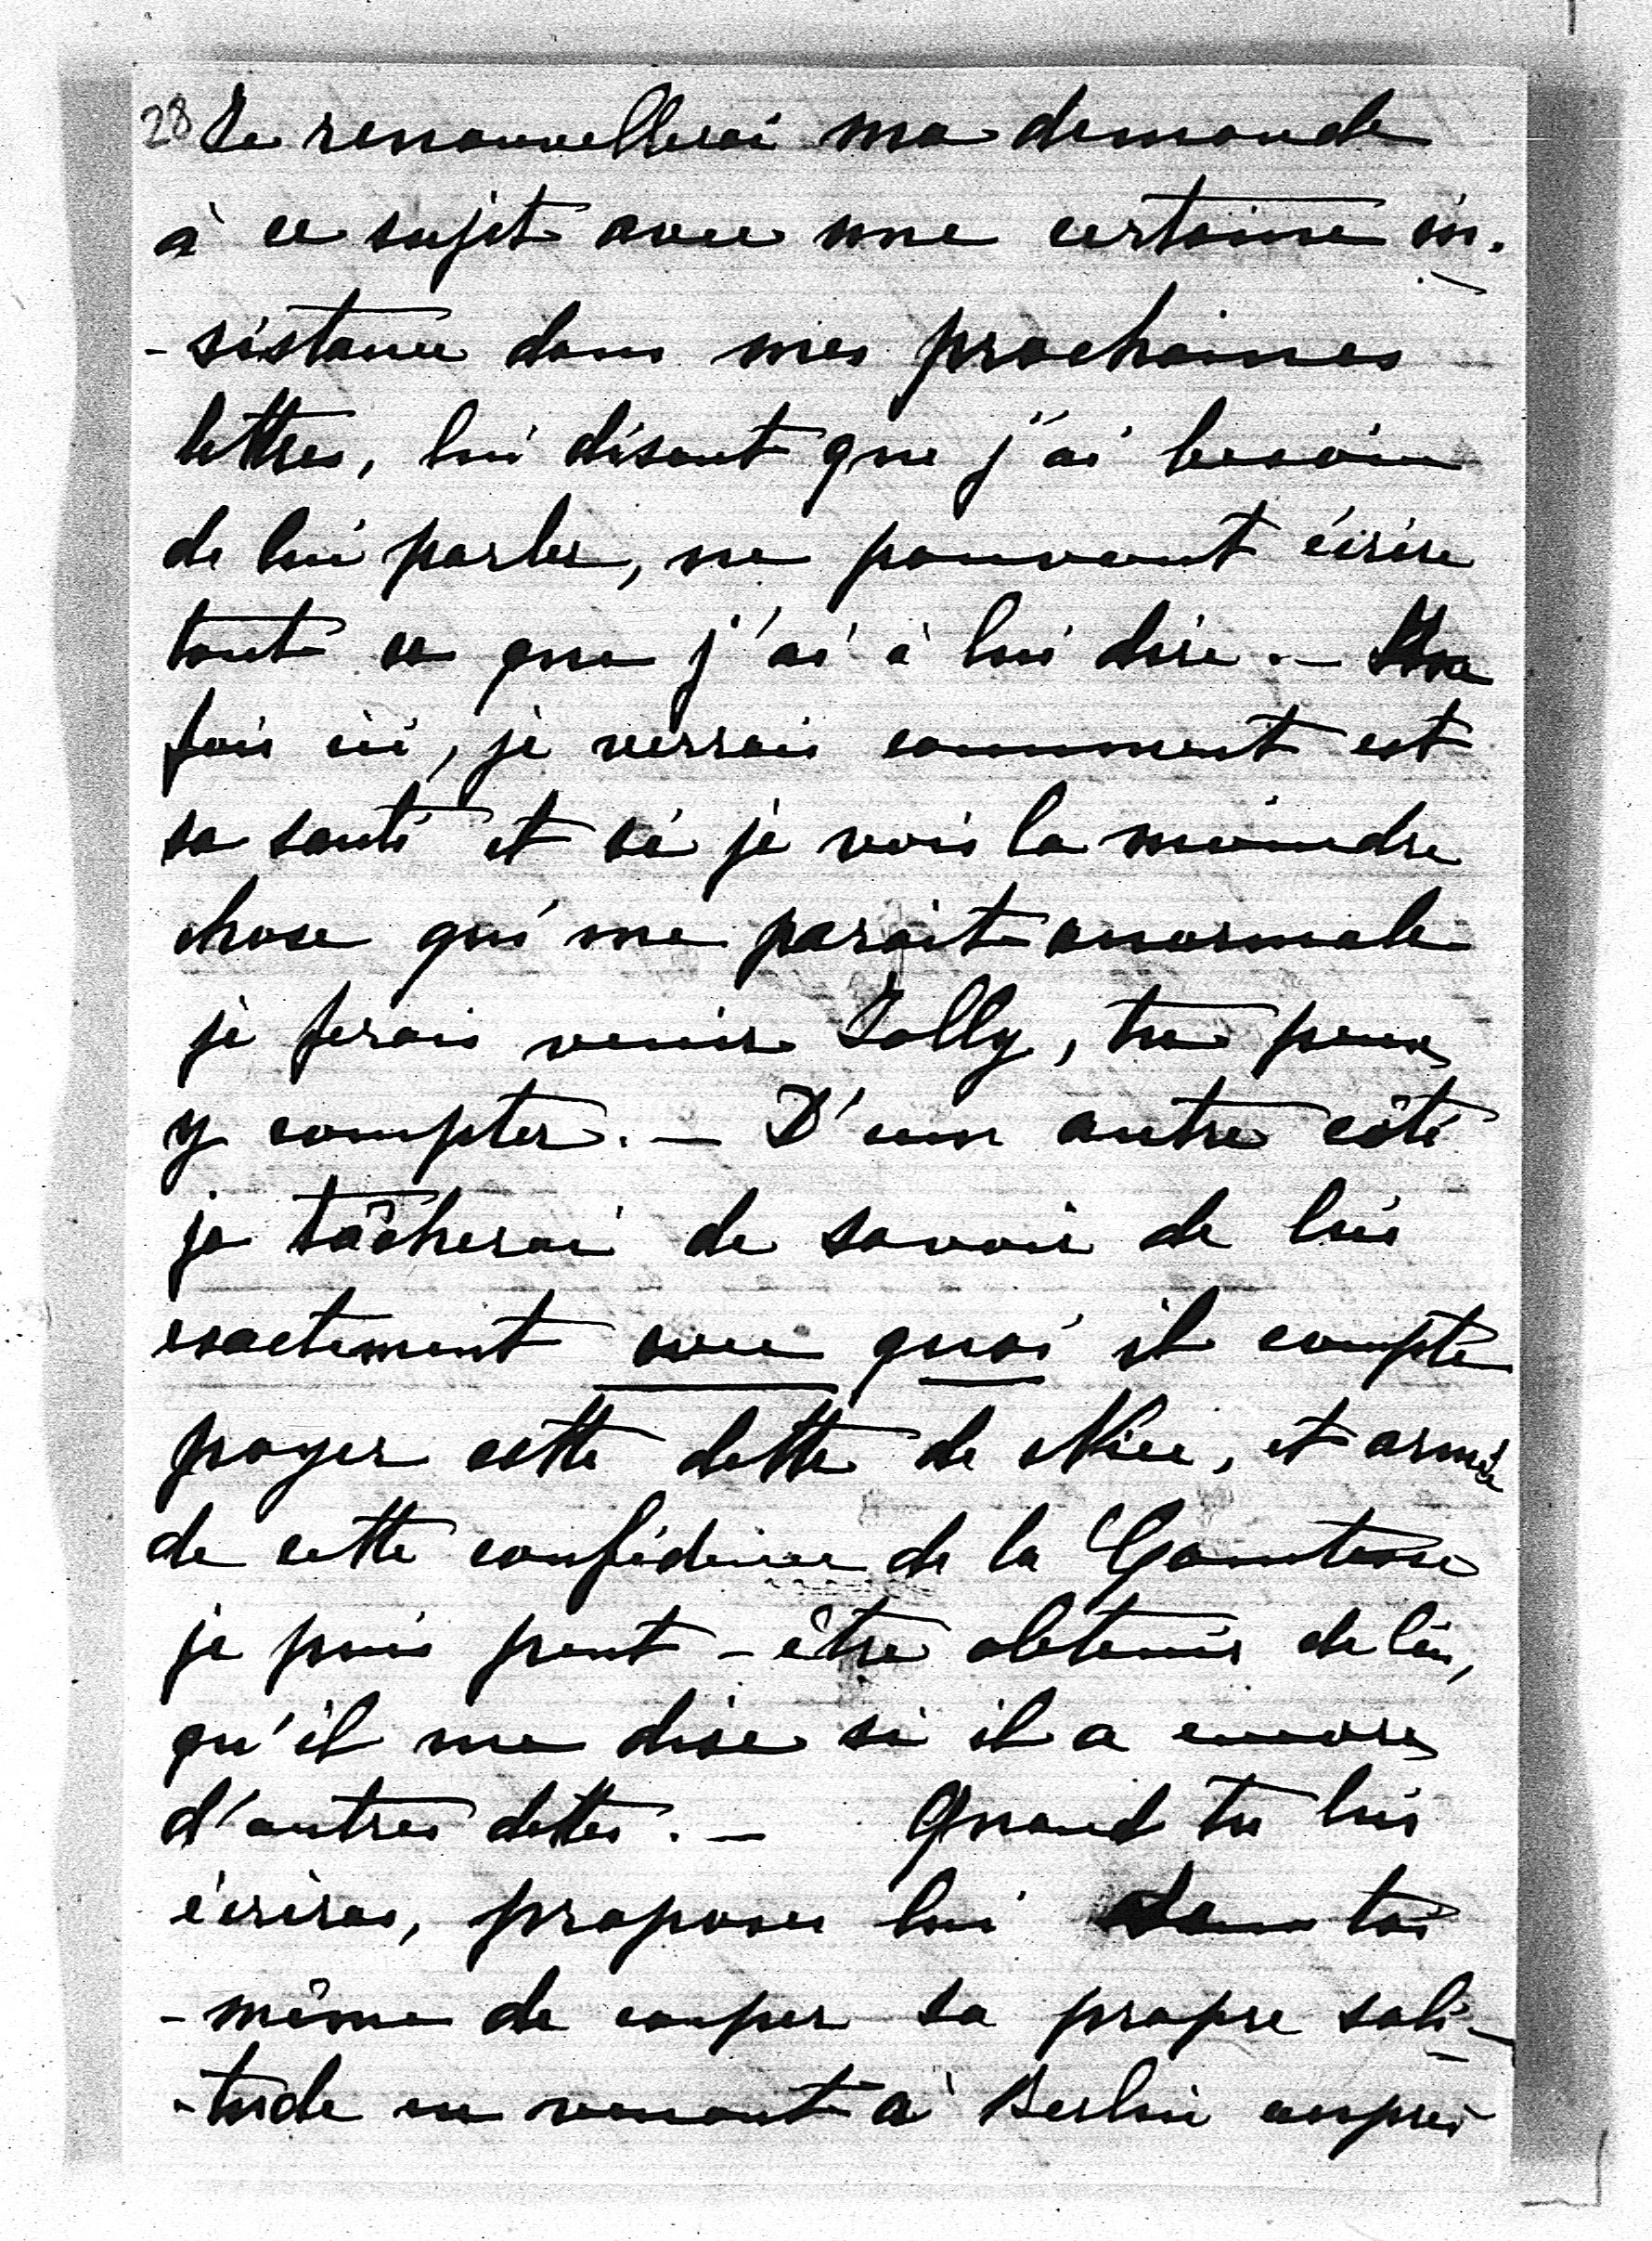 28 Je renouvellerai ma demande
à ce sujet avec une certaine in-
-sistance dans mes prochaines
lettres, lui disant que j'ai besoin
de lui parler, ne pouvant écrire
tout ce que j'ai à lui dire. — Une
fois ici, je verrais comment est
sa santé et si je vois la moindre
chose qui me paraît anormale
je ferais venir Jolly, tu peux
y compter. — D'un autre côté
je tâcherai de savoir de lui
exactement avec quoi il compte
payer cette dette de Nice, et armée
de cette confidence de la Comtesse
je puis peut-être obtenir de lui,
qu'il me dise si il a encore
d'autres dettes. — Quand tu lui
écriras, proposes lui toi
-même de couper sa propre soli-
-tude en venant à Berlin auprès